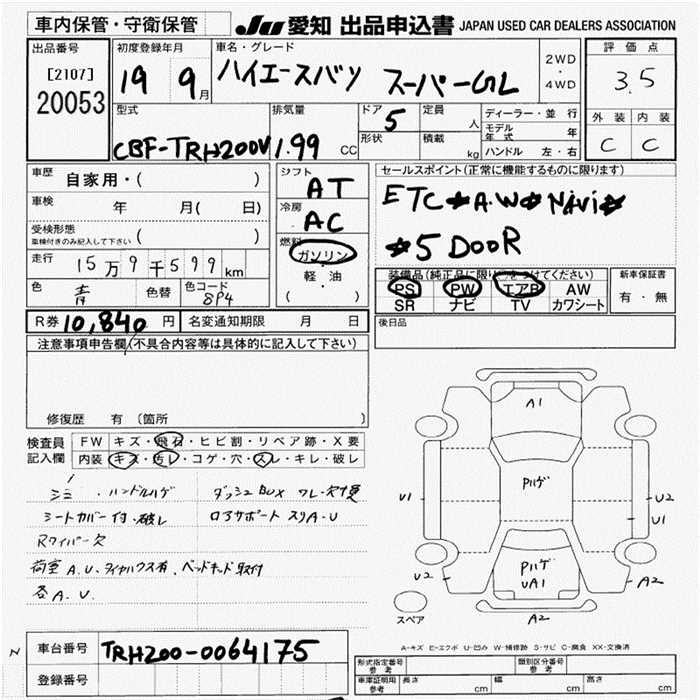 車内保管・守衛保管
JU 愛知 出品申込書 JAPAN USED CAR DEALERS ASSOCIATION
出品番号
[2107]
20053
初度登録年月
19 9月
車名・グレード
ハイエースバン スーパーGL
2WD
・
4WD
評価点
3.5
外装 内装
C C
型式
CBF-TRH200V
排気量
1.99 CC
ドア
5
形状
定員
人
積載
kg
ディーラー・並行
モデル年式 年
ハンドル 左・右
車歴 自家用・( )
車検 年 月(日 )
受検形態
車検付きのみ記入して下さい ( )
走行 15万9千599km
色 青 色替 色コード 8P4
シフト
AT
冷房
AC
燃料
ガソリン
・
軽・油
( )
セールスポイント(正常に機能するものに限ります)
ETC ★ A.W ★ NAVi ★
★5 DOOR
装備品(純正品に限り○をつけてください)
PS PW エアB AW
SR ナビ TV カワシート
新車保証書
有・無
R券 10,840 円 名変通知期限 月 日
後日品
注意事項申告欄(不具合内容等は具体的に記入して下さい)
修復歴 有 〔箇所 〕
検査員記入欄
FW キズ・飛石・ヒビ割・リペア跡・X要
内装 キズ・汚レ・コゲ・穴・スレ・キレ・破レ
シミ・ハンドルハゲ ダッシュBOX ワレ・欠才
シートカバー付・破レ ロアサポート スリA・U
Rワイパー欠
荷室 A.U、タイヤハウス有、ベッドキット取付
各A.U.
A1
Pハゲ
U1
U2
U1
Pハゲ
UA1
U2
A2
A2
スペア
A-キズ E-エクボ U-凹み W-補修跡 S-サビ C-腐食 XX-交換済
車台番号 TRH200-0064175
登録番号
形式指定番号 参考
類別区分番号 参考
車庫証明用 参考 長さ cm 幅 cm 高さ cm
N